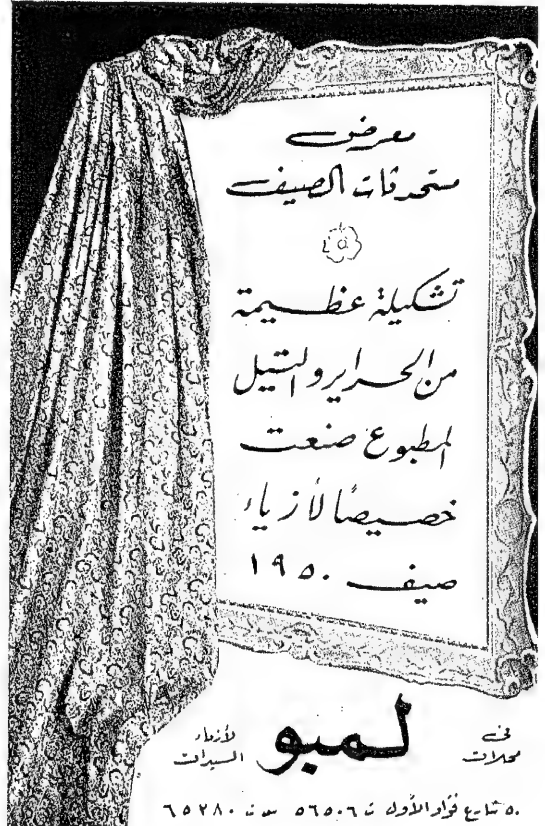 معرض
مستحدثات الصيف
تشكيلة عظيمة
من الحراير والتيل
المطبوع صنعت
خصيصًا لأزياء
صيف ١٩٥٠
في محلات
لمبو
لأزياء السيدات
٥٠ شارع فؤاد الأول ت ٥٦٥٠٦ س ت ٦٥٢٨٠